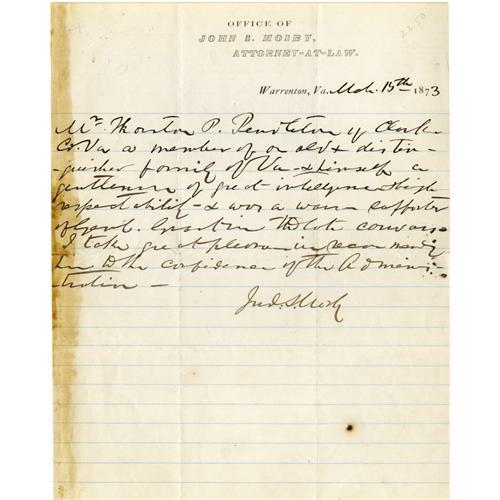 OFFICE OF
JOHN S. MOSBY,
ATTORNEY-AT-LAW.
22.50
Warrenton, Va. Mch. 15th 1873
Mr. Thornton P. Pendleton of Clarke
Co Va a member of an old & distin-
-guished family of Va - & himself a
gentleman of great intelligence & high
respectability - & was a warm supporter
of Genl. Grant in the late canvass -
I take great pleasure in recommending
him to the confidence of the Adminis-
-tration -
Jno. S. Mosby